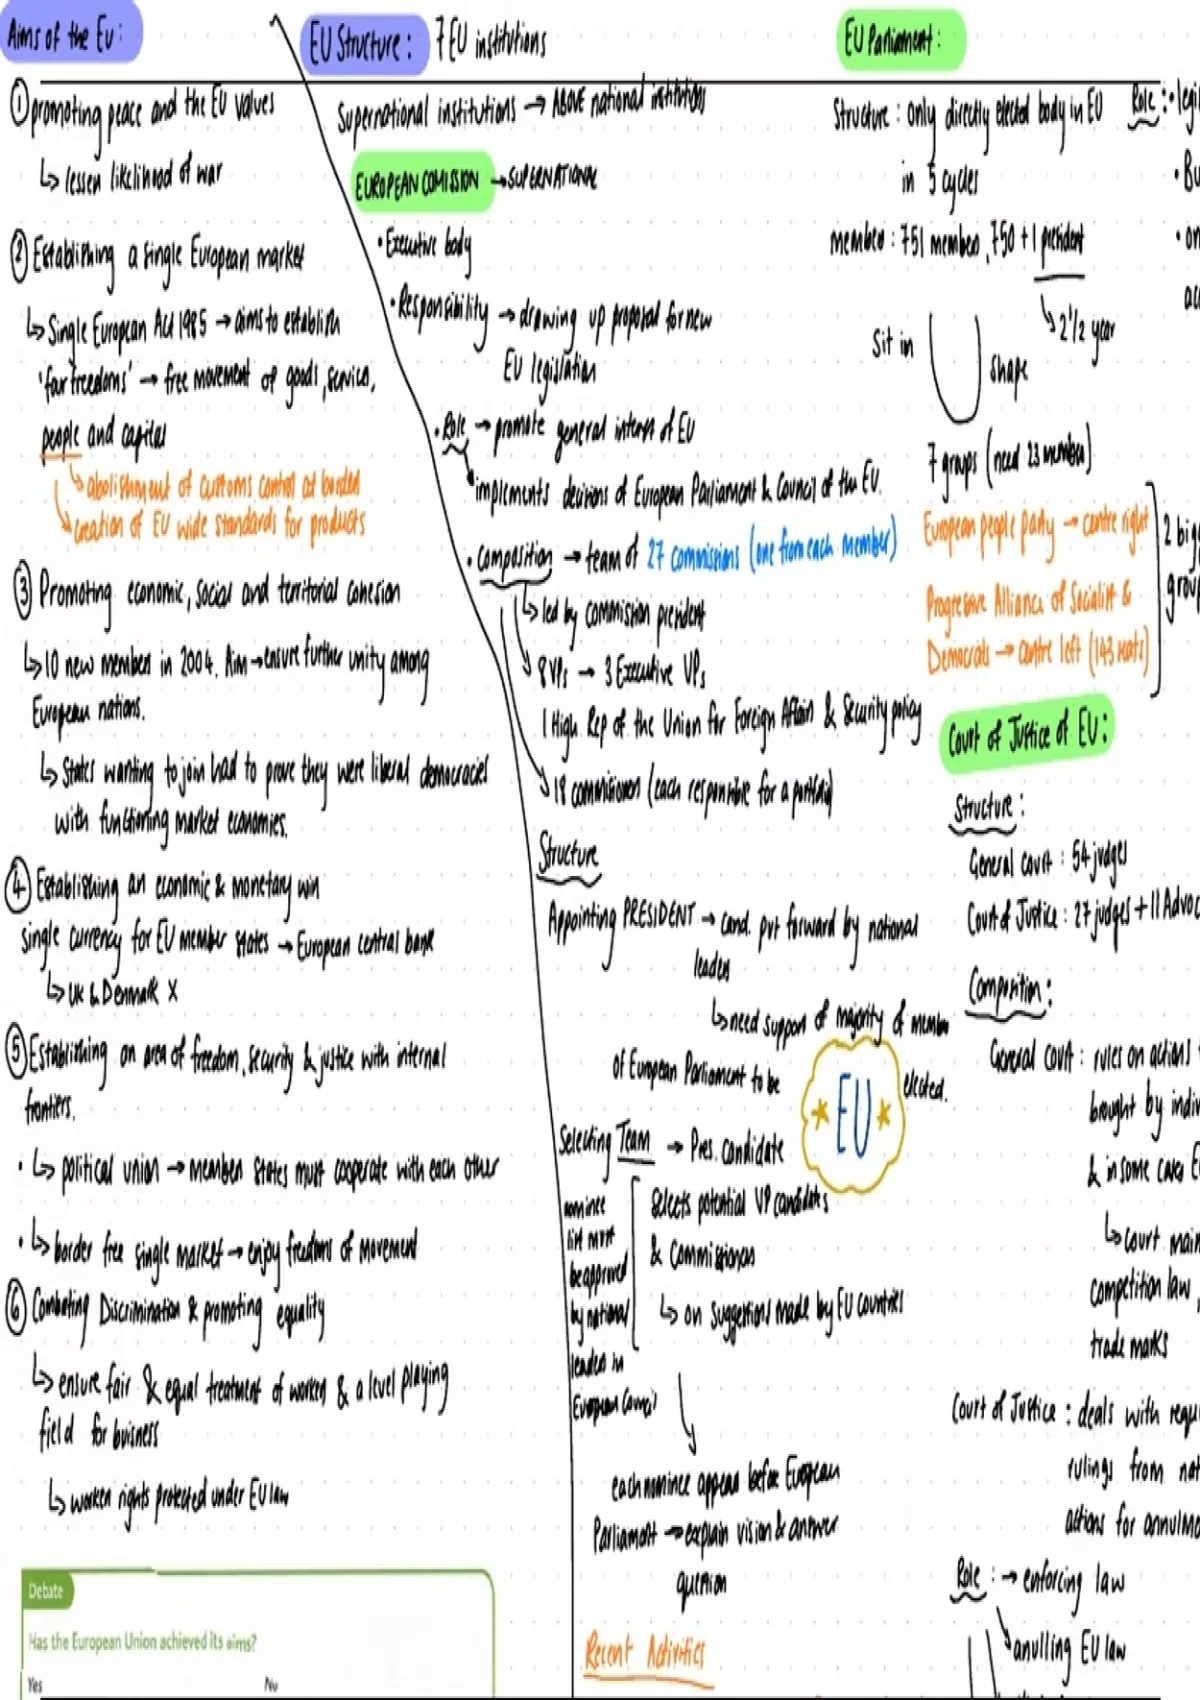 Aims of the Eu:
① promoting peace and the EU values
↳ lessen likelihood of war
② Establishing a single European market
↳ Single European Act 1985 → aims to establish
'four freedoms' → free movement of goods, services,
people and capital
↳ abolishment of customs control at borders
↳ creation of EU wide standards for products
③ Promoting economic, social and territorial cohesion
↳ 10 new members in 2004. Aim → ensure further unity among
European nations.
↳ States wanting to join had to prove they were liberal democracies
with functioning market economies.
④ Establishing an economic & monetary union
single currency for EU member states → European central bank
↳ UK & Denmark X
⑤ Establishing an area of freedom, security & justice with internal
frontiers.
• ↳ political union → members states must cooperate with each other
• ↳ border free single market → enjoy freedoms of movement
⑥ Combating Discrimination & promoting equality
↳ ensure fair & equal treatment of workers & a level playing
field for buisness
↳ workers rights protected under EU law
Debate
Has the European Union achieved its aims?
Yes No
EU Structure: 7 EU institutions
Supernational institutions → ABOVE national institutions
EUROPEAN COMISSION → SUPERNATIONAL
• Executive body
• Responsibility → drawing up proposal for new
EU legislation
• Role → promote general interest of EU
implements decisions of European Parliament & Council of the EU.
• Composition → team of 27 commissions (one from each member)
↳ led by commission president
↳ 8 VPs → 3 Executive VPs
1 High Rep of the Union for Foreign Affairs & Security policy
18 commissioners (each responsible for a portfolio)
Structure
Appointing PRESIDENT → cand. put forward by national
leaders
↳ need support of majority of members
of European Parliament to be elected.
★ EU ★
Selecting Team → Pres. candidate
selects potential VP candidates
& Commissioners
↳ on suggestions made by EU countries
nominee
list must
be approved
by national
leaders in
European Council
each nominee appears before European
Parliament → explain vision & answer
question
Recent Activities
EU Parliament:
Structure: only directly elected body in EU
in 5 cycles
members: 751 members, 750 + 1 president
↳ 2½ year
Sit in U shape
7 groups (need 23 members)
European people party → centre right
Progressive Alliance of Socialist &
Democrats → centre left (143 seats)
2 bigg
group
Role: • legi
• Bu
• on
Court of Justice of EU:
Structure:
General court: 54 judges
Court of Justice: 27 judges + 11 Advoc
Composition:
General court: rules on actions
brought by indiv
& in some cases E
↳ court main
competition law,
trade marks
Court of Justice: deals with requ
rulings from nat
actions for annulme
Role: → enforcing law
anulling EU law